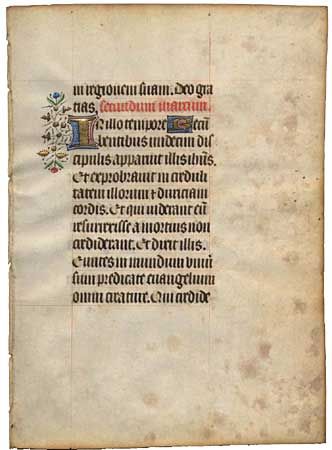 in regionem suam. Deo gra
tias. Secundum marcum.
In illo tempore Recū
bentibus undecim dis
cipulis apparuit illis ihus.
Et exprobravit in creduli
tatem illorum et duriciam
cordis. Et qui viderant eū
resurrexisse a mortuis non
crediderant. Et dixit illis.
Euntes in mundum univer
sum predicate euangelium
omni creature. Qui credide